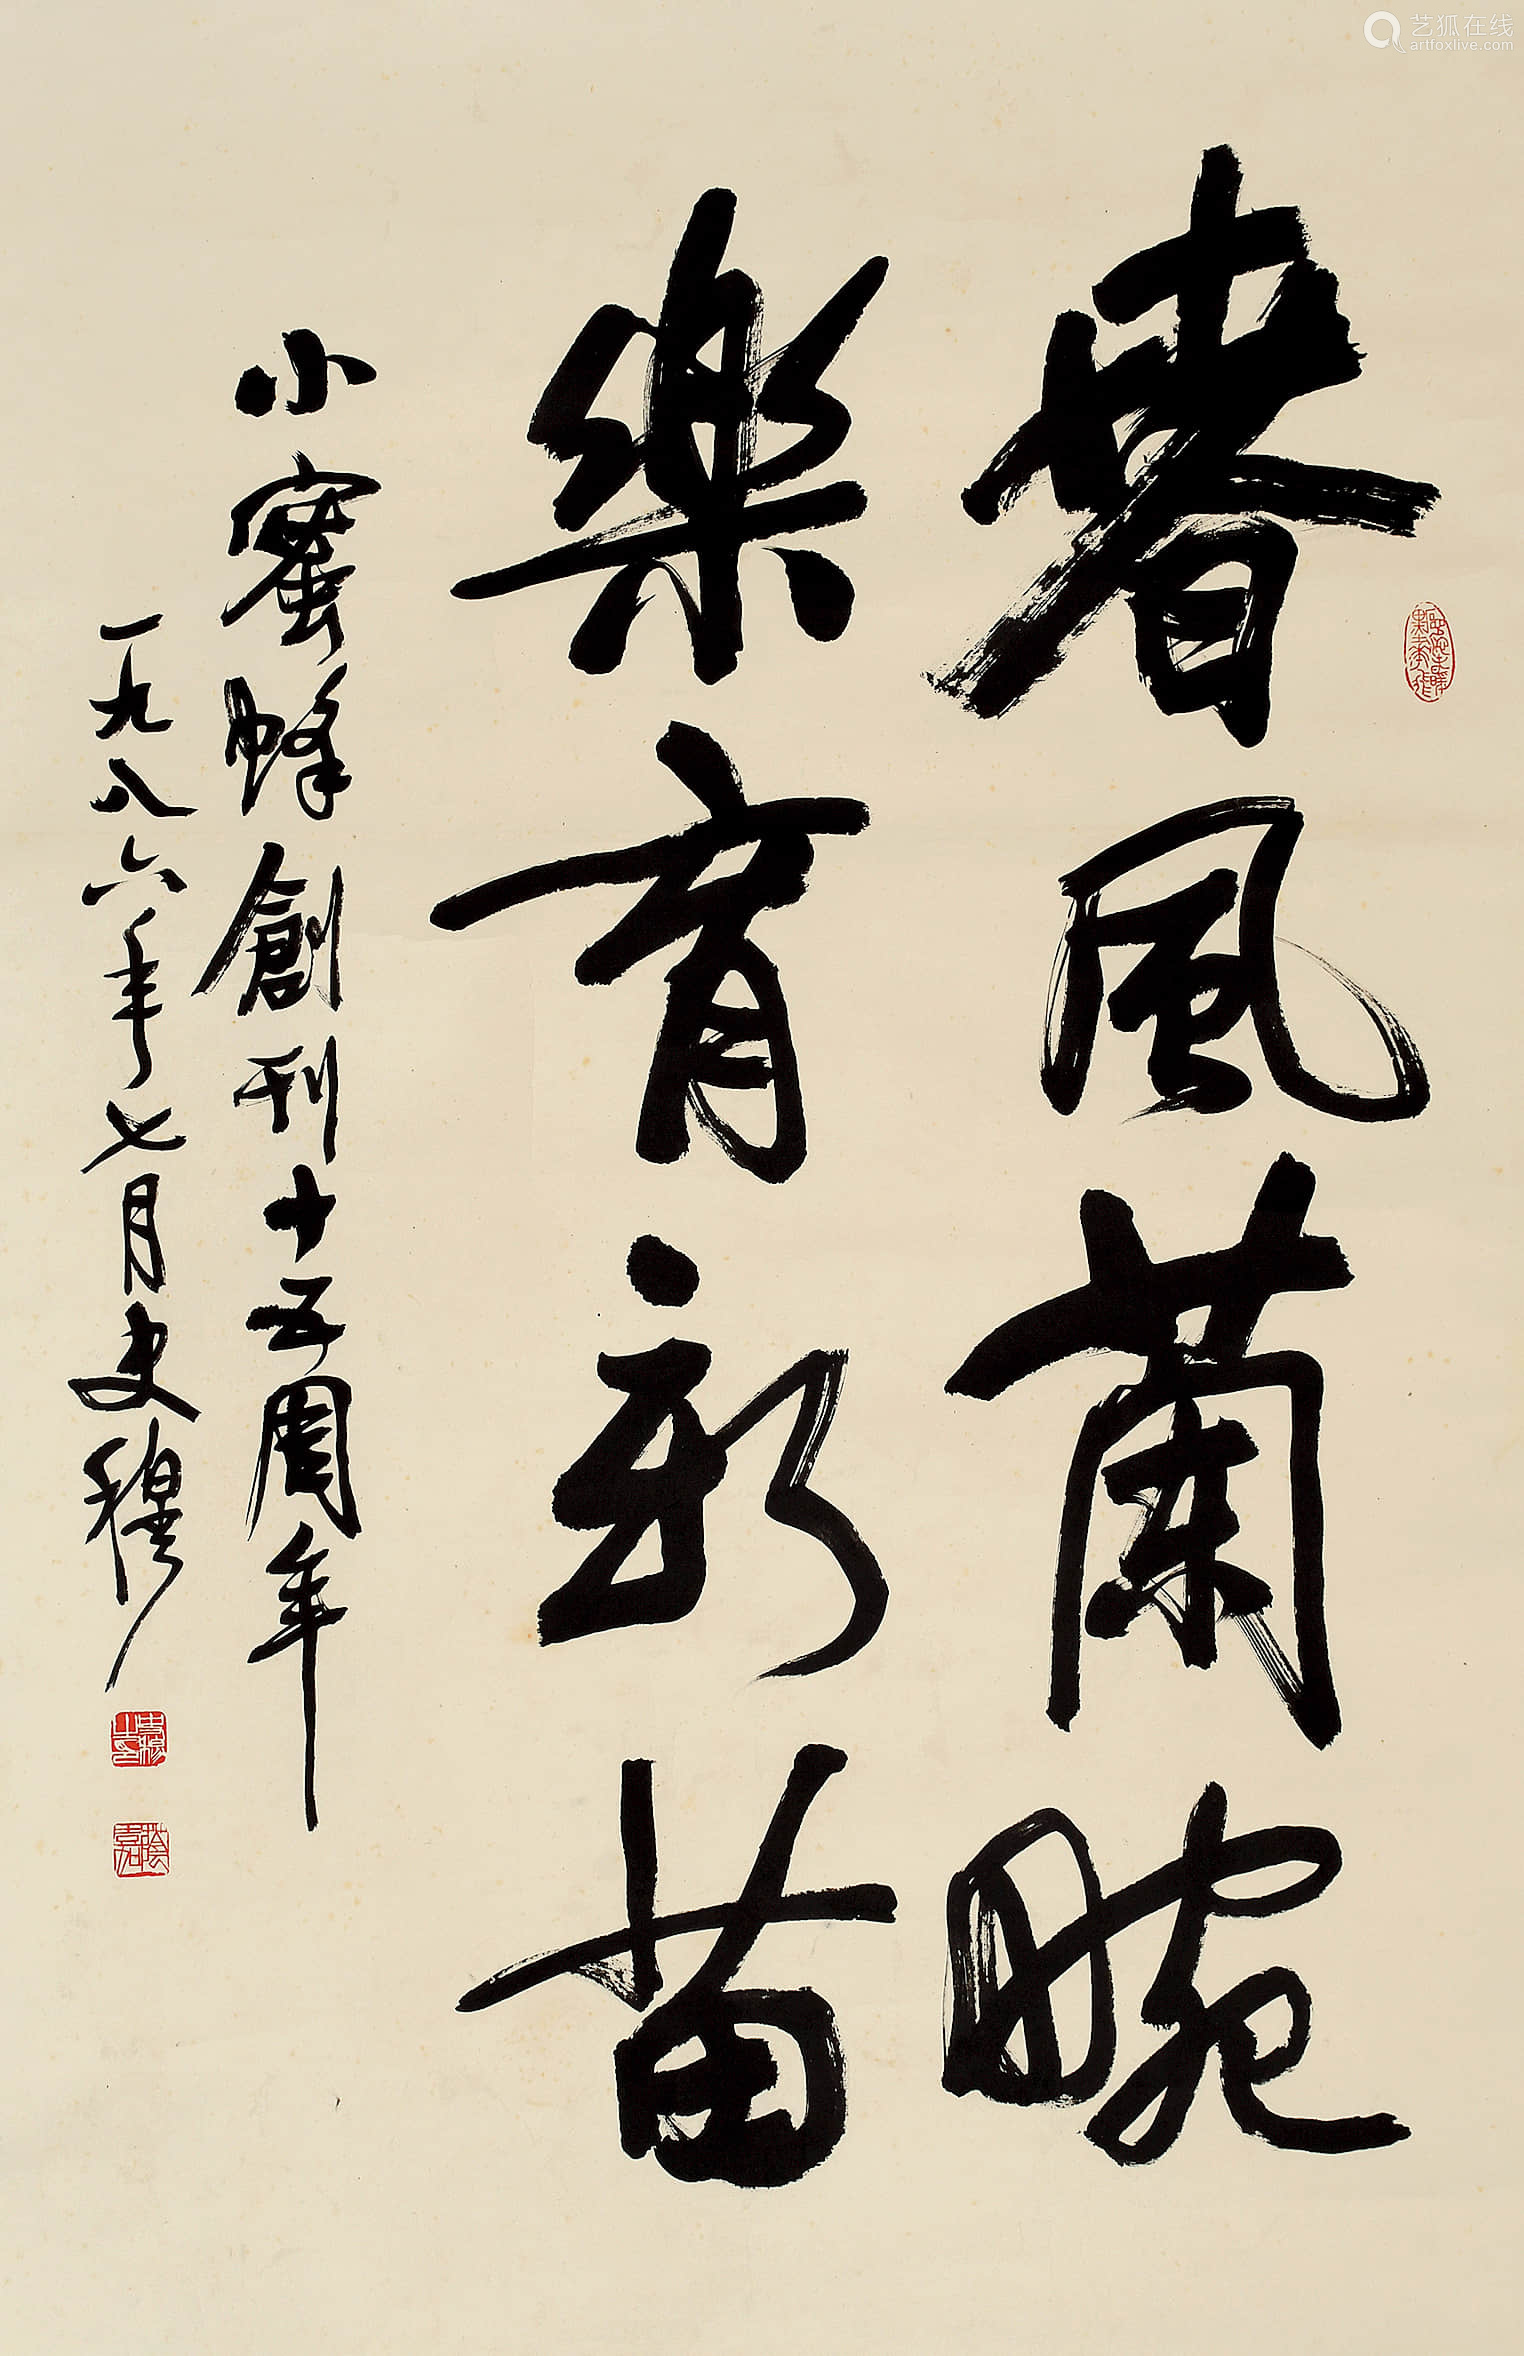 春風蘭畹
樂育新苗
小蜜蜂創刊十五周年
一九八六年七月史穆
史穆之印
嘉蔭
艺狐在线
artfoxlive.com